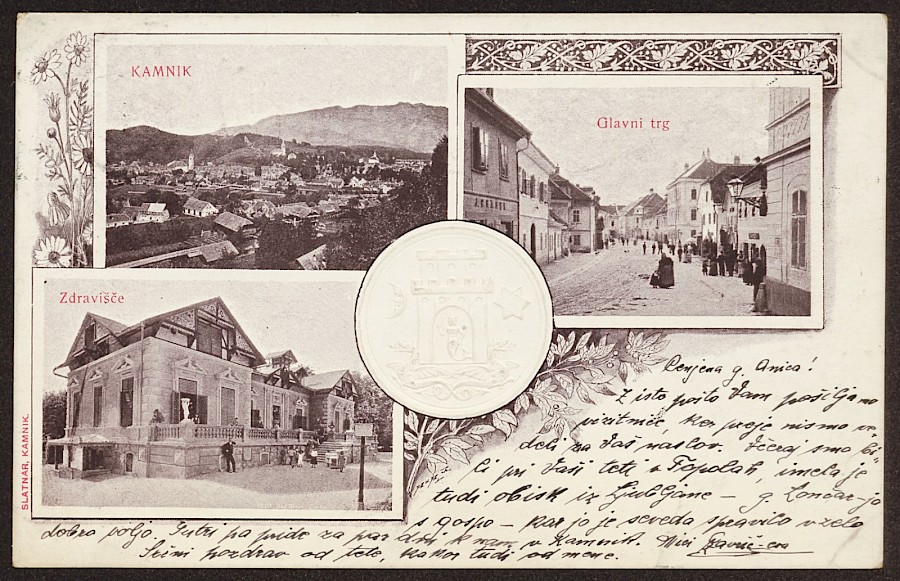 KAMNIK
Glavni trg
Zdravišče
SLATNAR, KAMNIK.
Cenjena g. Anica!
Z isto pošto Vam pošiljamo
vizitniče, ker preje nismo ve-
deli za Vaš naslov. Včeraj smo bi-
li pri Vaši teti v Topolah, imela je
tudi obisk iz Ljubljane – g. Lončar-jo
s gospo – kar jo je seveda spravilo v zelo
dobro voljo. Jutri pa pride za par dni k nam v Kamnik. Mici
Srčni pozdrav od tete, kakor tudi od mene.